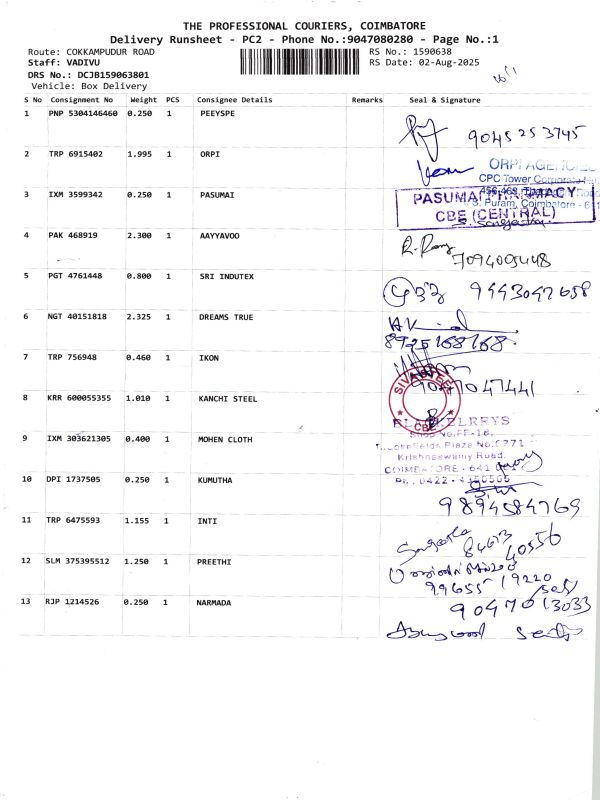 THE PROFESSIONAL COURIERS, COIMBATORE
Delivery Runsheet - PC2 - Phone No.:9047080280 - Page No.:1
Route: COKKAMPUDUR ROAD RS No.: 1590638
Staff: VADIVU RS Date: 02-Aug-2025
DRS No.: DCJB159063801
Vehicle: Box Delivery
S No Consignment No Weight PCS Consignee Details Remarks Seal & Signature
1 PNP 5304146460 0.250 1 PEEYSPE
9045253745
2 TRP 6915402 1.995 1 ORPI
ORPI AGENCIES
CPC Tower Corporate
3 IXM 3599342 0.250 1 PASUMAI
PASUMAI PHARMACY
S. Puram, Coimbatore
CBE (CENTRAL)
4 PAK 468919 2.300 1 AAYYAVOO
7094005448
5 PGT 4761448 0.800 1 SRI INDUTEX
9443047658
6 NGT 40151818 2.325 1 DREAMS TRUE
8925168168
7 TRP 756948 0.460 1 IKON
9047047441
8 KRR 600055355 1.010 1 KANCHI STEEL
CBE
9 IXM 303621305 0.400 1 MOHEN CLOTH
Krishnaswamy Road,
COIMBATORE - 641
10 DPI 1737505 0.250 1 KUMUTHA
9894584769
11 TRP 6475593 1.155 1 INTI
40556
12 SLM 375395512 1.250 1 PREETHI
99655 19220
13 RJP 1214526 0.250 1 NARMADA
9047013033